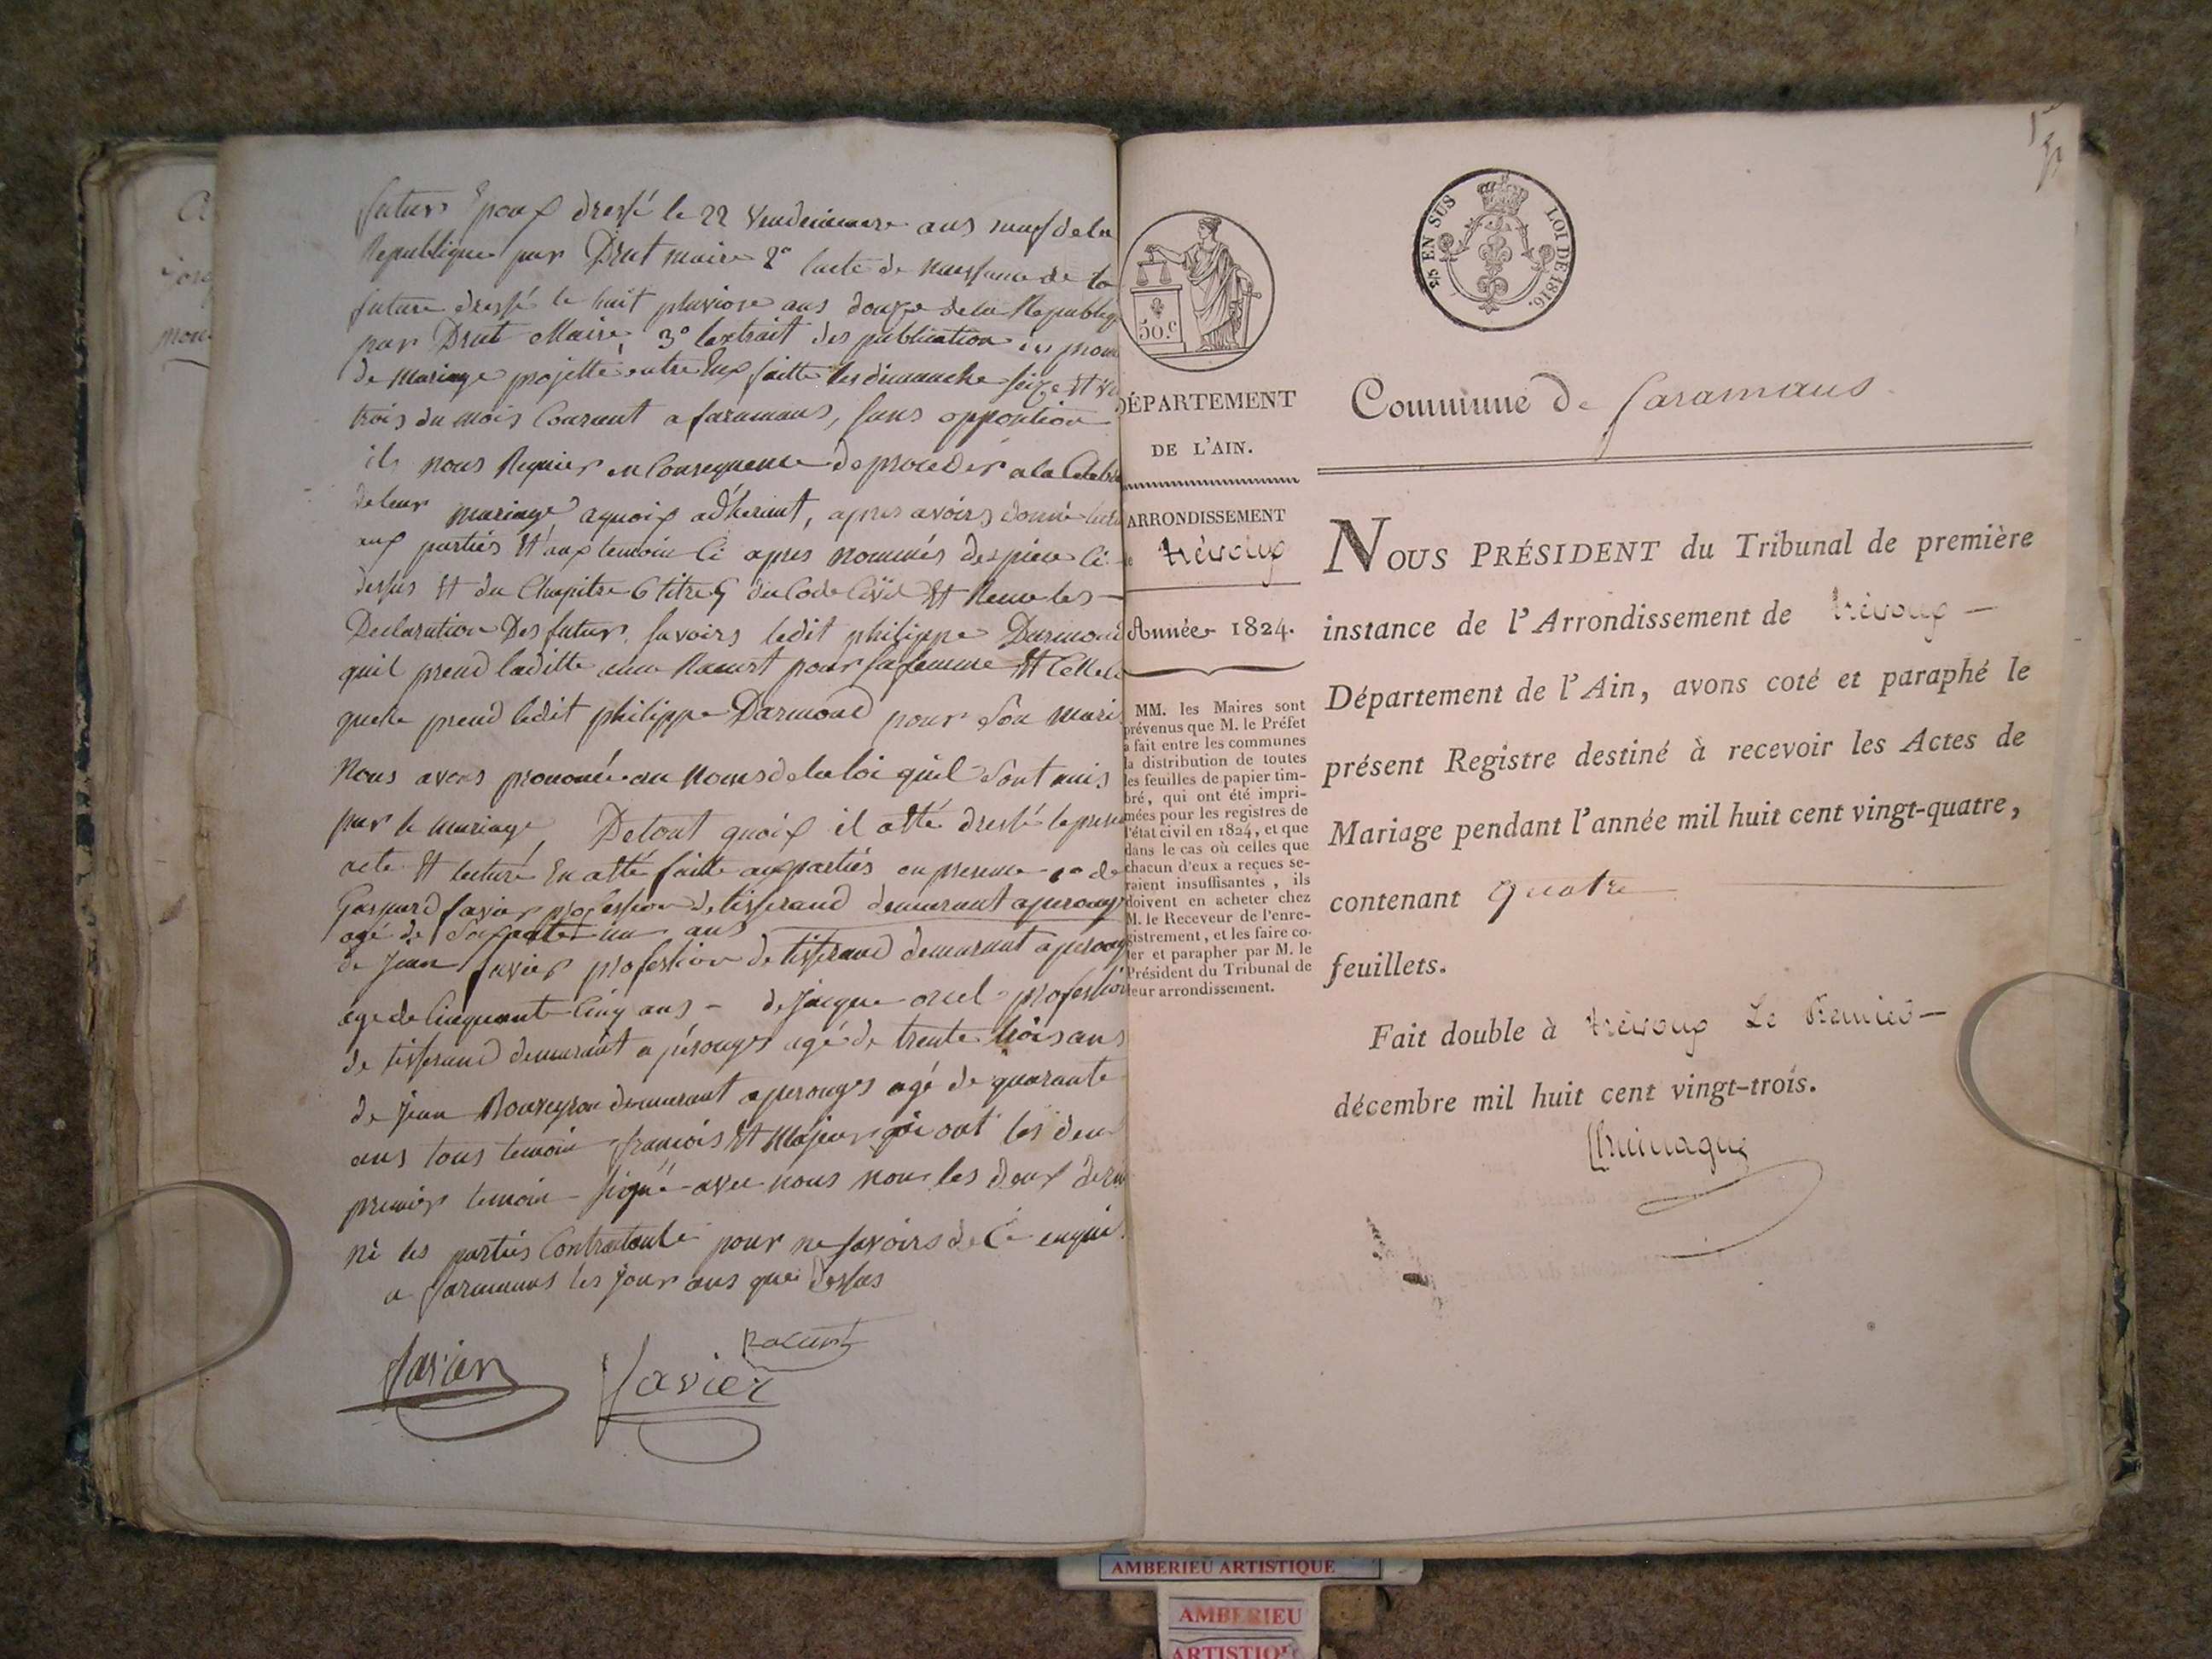 futur Epoux dressé le 22 Vendemiaire ans neuf de la
Republique par Drut maire 2° lacte de naissance de la
future dressé le huit pluviose ans douze de la Republiq
par Drut Maire, 3° lextrait des publication
de mariage projetté entre Eux faitte les dimanche seize et
trois du mois Courant a faramans, sans oppontion
ils nous Requier en Consequence de proceder a la Celebra
de leur mariage aquoix adherant, apres avoirs donné
aux parties Et aux temoin Ci apres nommés des piece Ci
dessus Et du Chapitre 6 titre 5 du Code Civil Et Recu les
Declaration Des futur, savoirs ledit philippe Darmond
quil prend laditte Racurt pour sa femme Et
quelle prend ledit philippe Darmond pour Son mari
Nous avons prononcé au Noms de la loi quil Sont unis
par le mariage, De tout quoix il atté dressé le prese
acte Et lecture En atté faitte aux parties en presence 1° de
Gaspard favier profession de tisserand demeurant a peroug
agé de Soixante un ans
de Jean favier profession de tisserand demeurant a peroug
age de Cinquante Cinq ans - de jacque orcel profession
de tisserand demeurant a pérouges agé de trente trois ans
de Jean Rouveyron demeurant a perouges agé de quarante
ans tous temoin francois Et Majeur qui ont les deux
premier temoin signé avec nous non les deux dern
ni les parties Contractante pour ne savoirs de Ce enquis
a faramans les jour ans que Dessus
favier
Racurt
favier
AMBERIEU ARTISTIQUE
AMBERIEU
ARTISTIQU
3/5 EN SUS LOI DE 1816.
50.c
DÉPARTEMENT
DE L'AIN.
ARRONDISSEMENT
trévoux
Année 1824.
MM. les Maires sont
prévenus que M. le Préfet
a fait entre les communes
la distribution de toutes
les feuilles de papier tim-
bré, qui ont été impri-
mées pour les registres de
l'état civil en 1824, et que
dans le cas où celles que
chacun d'eux a reçues se-
raient insuffisantes, ils
doivent en acheter chez
M. le Receveur de l'enre-
gistrement, et les faire co-
ter et parapher par M. le
Président du Tribunal de
leur arrondissement.
Commune de faramans
NOUS PRÉSIDENT du Tribunal de première
instance de l'Arrondissement de trévoux
Département de l'Ain, avons coté et paraphé le
présent Registre destiné à recevoir les Actes de
Mariage pendant l'année mil huit cent vingt-quatre,
contenant quatre
feuillets.
Fait double à trévoux Le Premier
décembre mil huit cent vingt-trois.